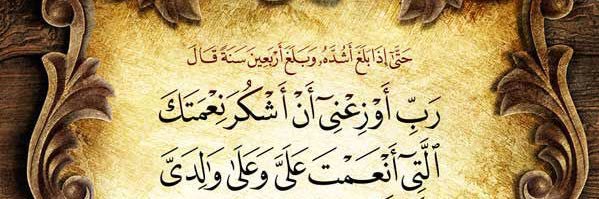 حَتَّىٰ إِذَا بَلَغَ أَشُدَّهُۥ وَبَلَغَ أَرْبَعِينَ سَنَةً قَالَ
رَبِّ أَوْزِعْنِىٓ أَنْ أَشْكُرَ نِعْمَتَكَ
ٱلَّتِىٓ أَنْعَمْتَ عَلَىَّ وَعَلَىٰ وَٰلِدَىَّ